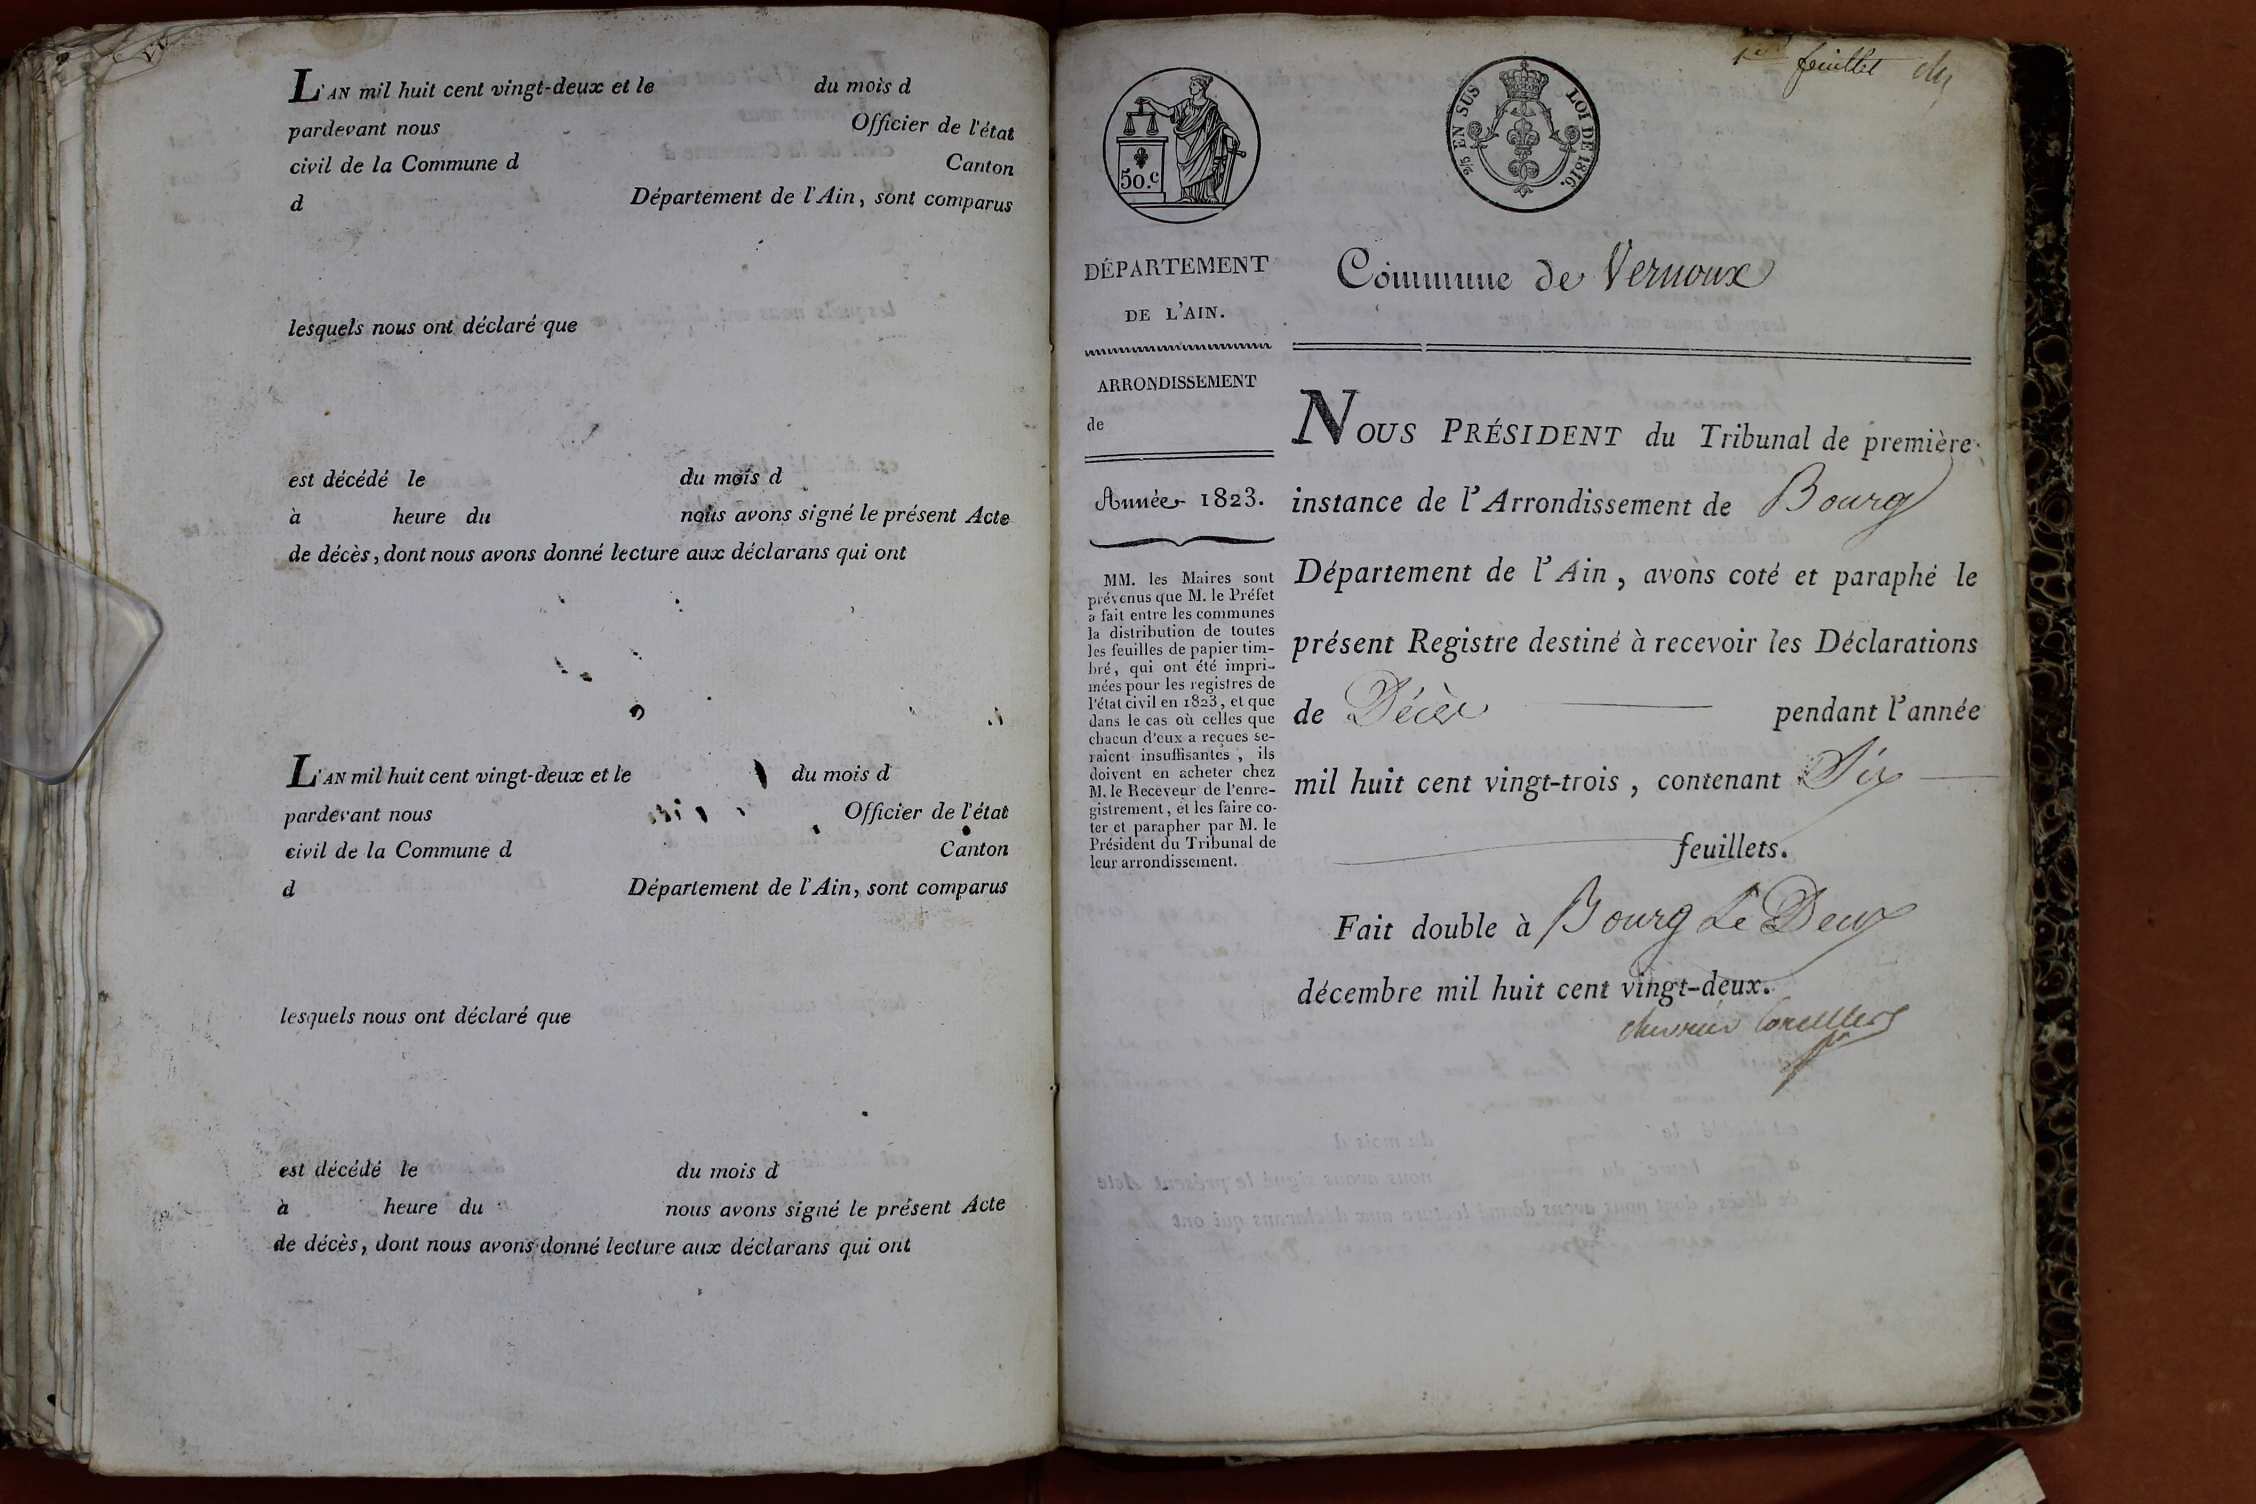 L'AN mil huit cent vingt-deux et le du mois d
pardevant nous Officier de l'état
civil de la Commune d Canton
d Département de l'Ain, sont comparus
lesquels nous ont déclaré que
est décédé le du mois d
à heure du nous avons signé le présent Acte
de décès, dont nous avons donné lecture aux déclarans qui ont
L'AN mil huit cent vingt-deux et le du mois d
pardevant nous Officier de l'état
civil de la Commune d Canton
d Département de l'Ain, sont comparus
lesquels nous ont déclaré que
est décédé le du mois d
à heure du nous avons signé le présent Acte
de décès, dont nous avons donné lecture aux déclarans qui ont
1er feuillet
50.c
EN SUS LOI DE 1816.
DÉPARTEMENT
DE L'AIN.
ARRONDISSEMENT
de
Année 1823.
MM. les Maires sont
prévenus que M. le Préfet
a fait entre les communes
la distribution de toutes
les feuilles de papier tim-
bré, qui ont été impri-
mées pour les registres de
l'état civil en 1823, et que
dans le cas où celles que
chacun d'eux a reçues se-
raient insuffisantes, ils
doivent en acheter chez
M. le Receveur de l'enre-
gistrement, et les faire co-
ter et parapher par M. le
Président du Tribunal de
leur arrondissement.
Commune de Vernoux
NOUS PRÉSIDENT du Tribunal de première
instance de l'Arrondissement de Bourg
Département de l'Ain, avons coté et paraphé le
présent Registre destiné à recevoir les Déclarations
de Décès pendant l'année
mil huit cent vingt-trois, contenant Six
feuillets.
Fait double à Bourg Le Deux
décembre mil huit cent vingt-deux.